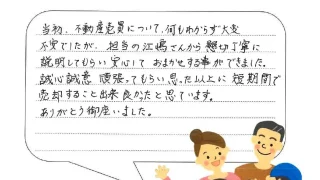 当初、不動産売買について、何もわからず大変
不安でしたが、担当の江嶋さんから懇切丁寧に
説明してもらい安心して おまかせする事ができました。
誠心誠意 頑張ってもらい思った以上に 短期間で
売却すること出来良かったと思ています。
ありがとう御座いました。